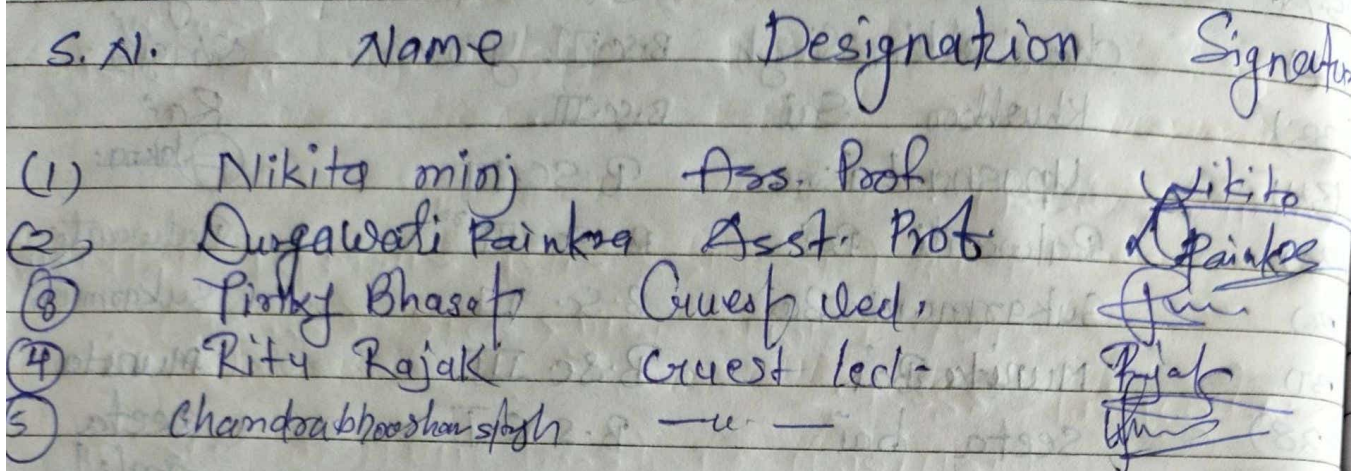 S. N. Name Designation Signatur
(1) Nikita minj Ass. Prof Nikita
(2) Durgawati Painkra Asst. Prof DPainkra
(3) Pinky Bhagat Guest lec.
(4) Ritu Rajak Guest lec- Rajak
5 Chandrabhooshan singh —u—